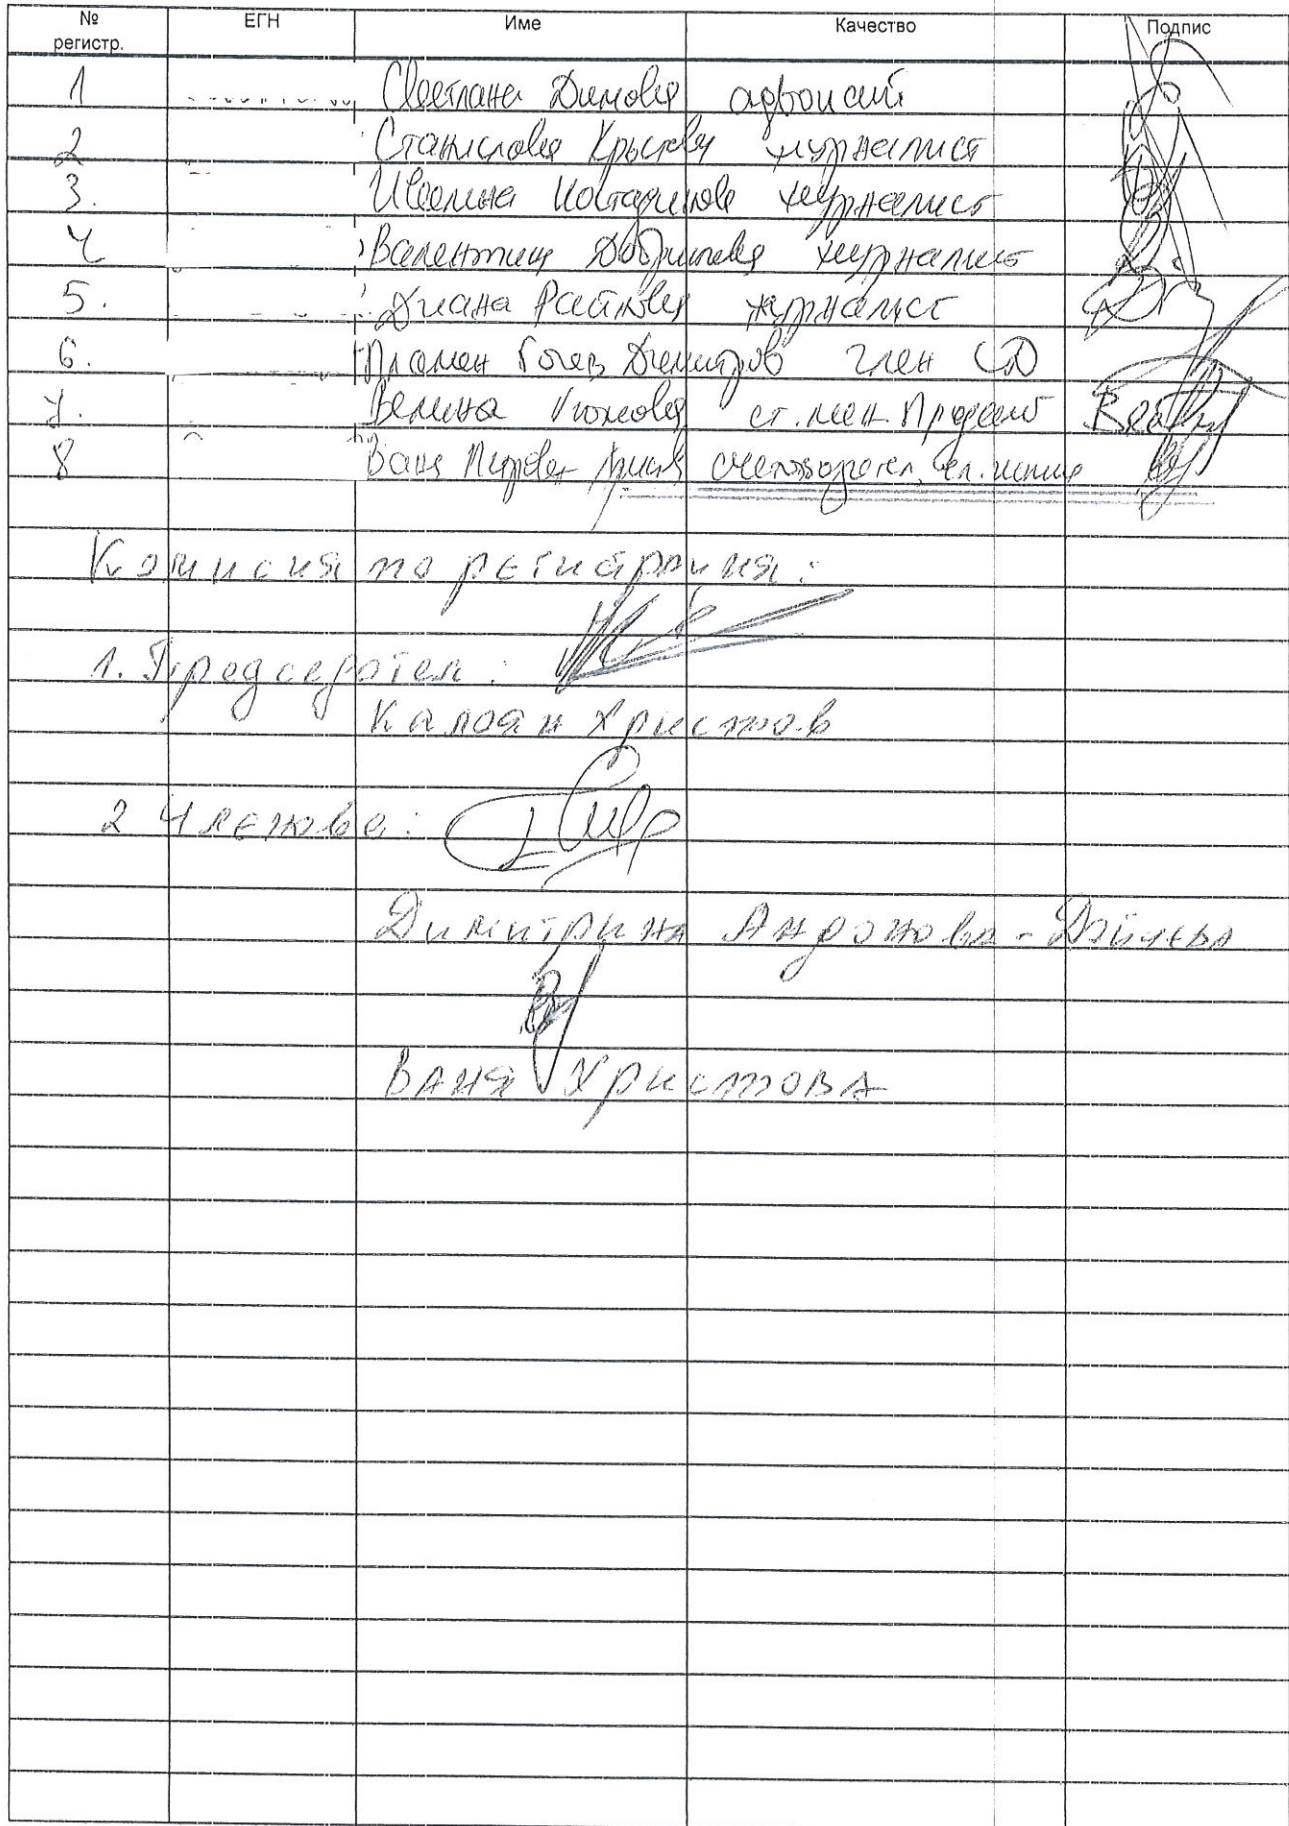 № регистр. ЕГН Име Качество Подпис
1 Светлана Димова адвокат
2 Станислава Кръстева журналист
3. Ивелина журналист
4 Валентина журналист
5. Диана Райкова журналист
6. Пламен Гочев Димитров член СД
7. Велина ст. мен. Продажб
8 Ваня счетоводител,
Комисия по регистрация:
1. Председател:
Калоян Христов
2 Членове:
Димитрина Андонова - Дойчева
Ваня Христова